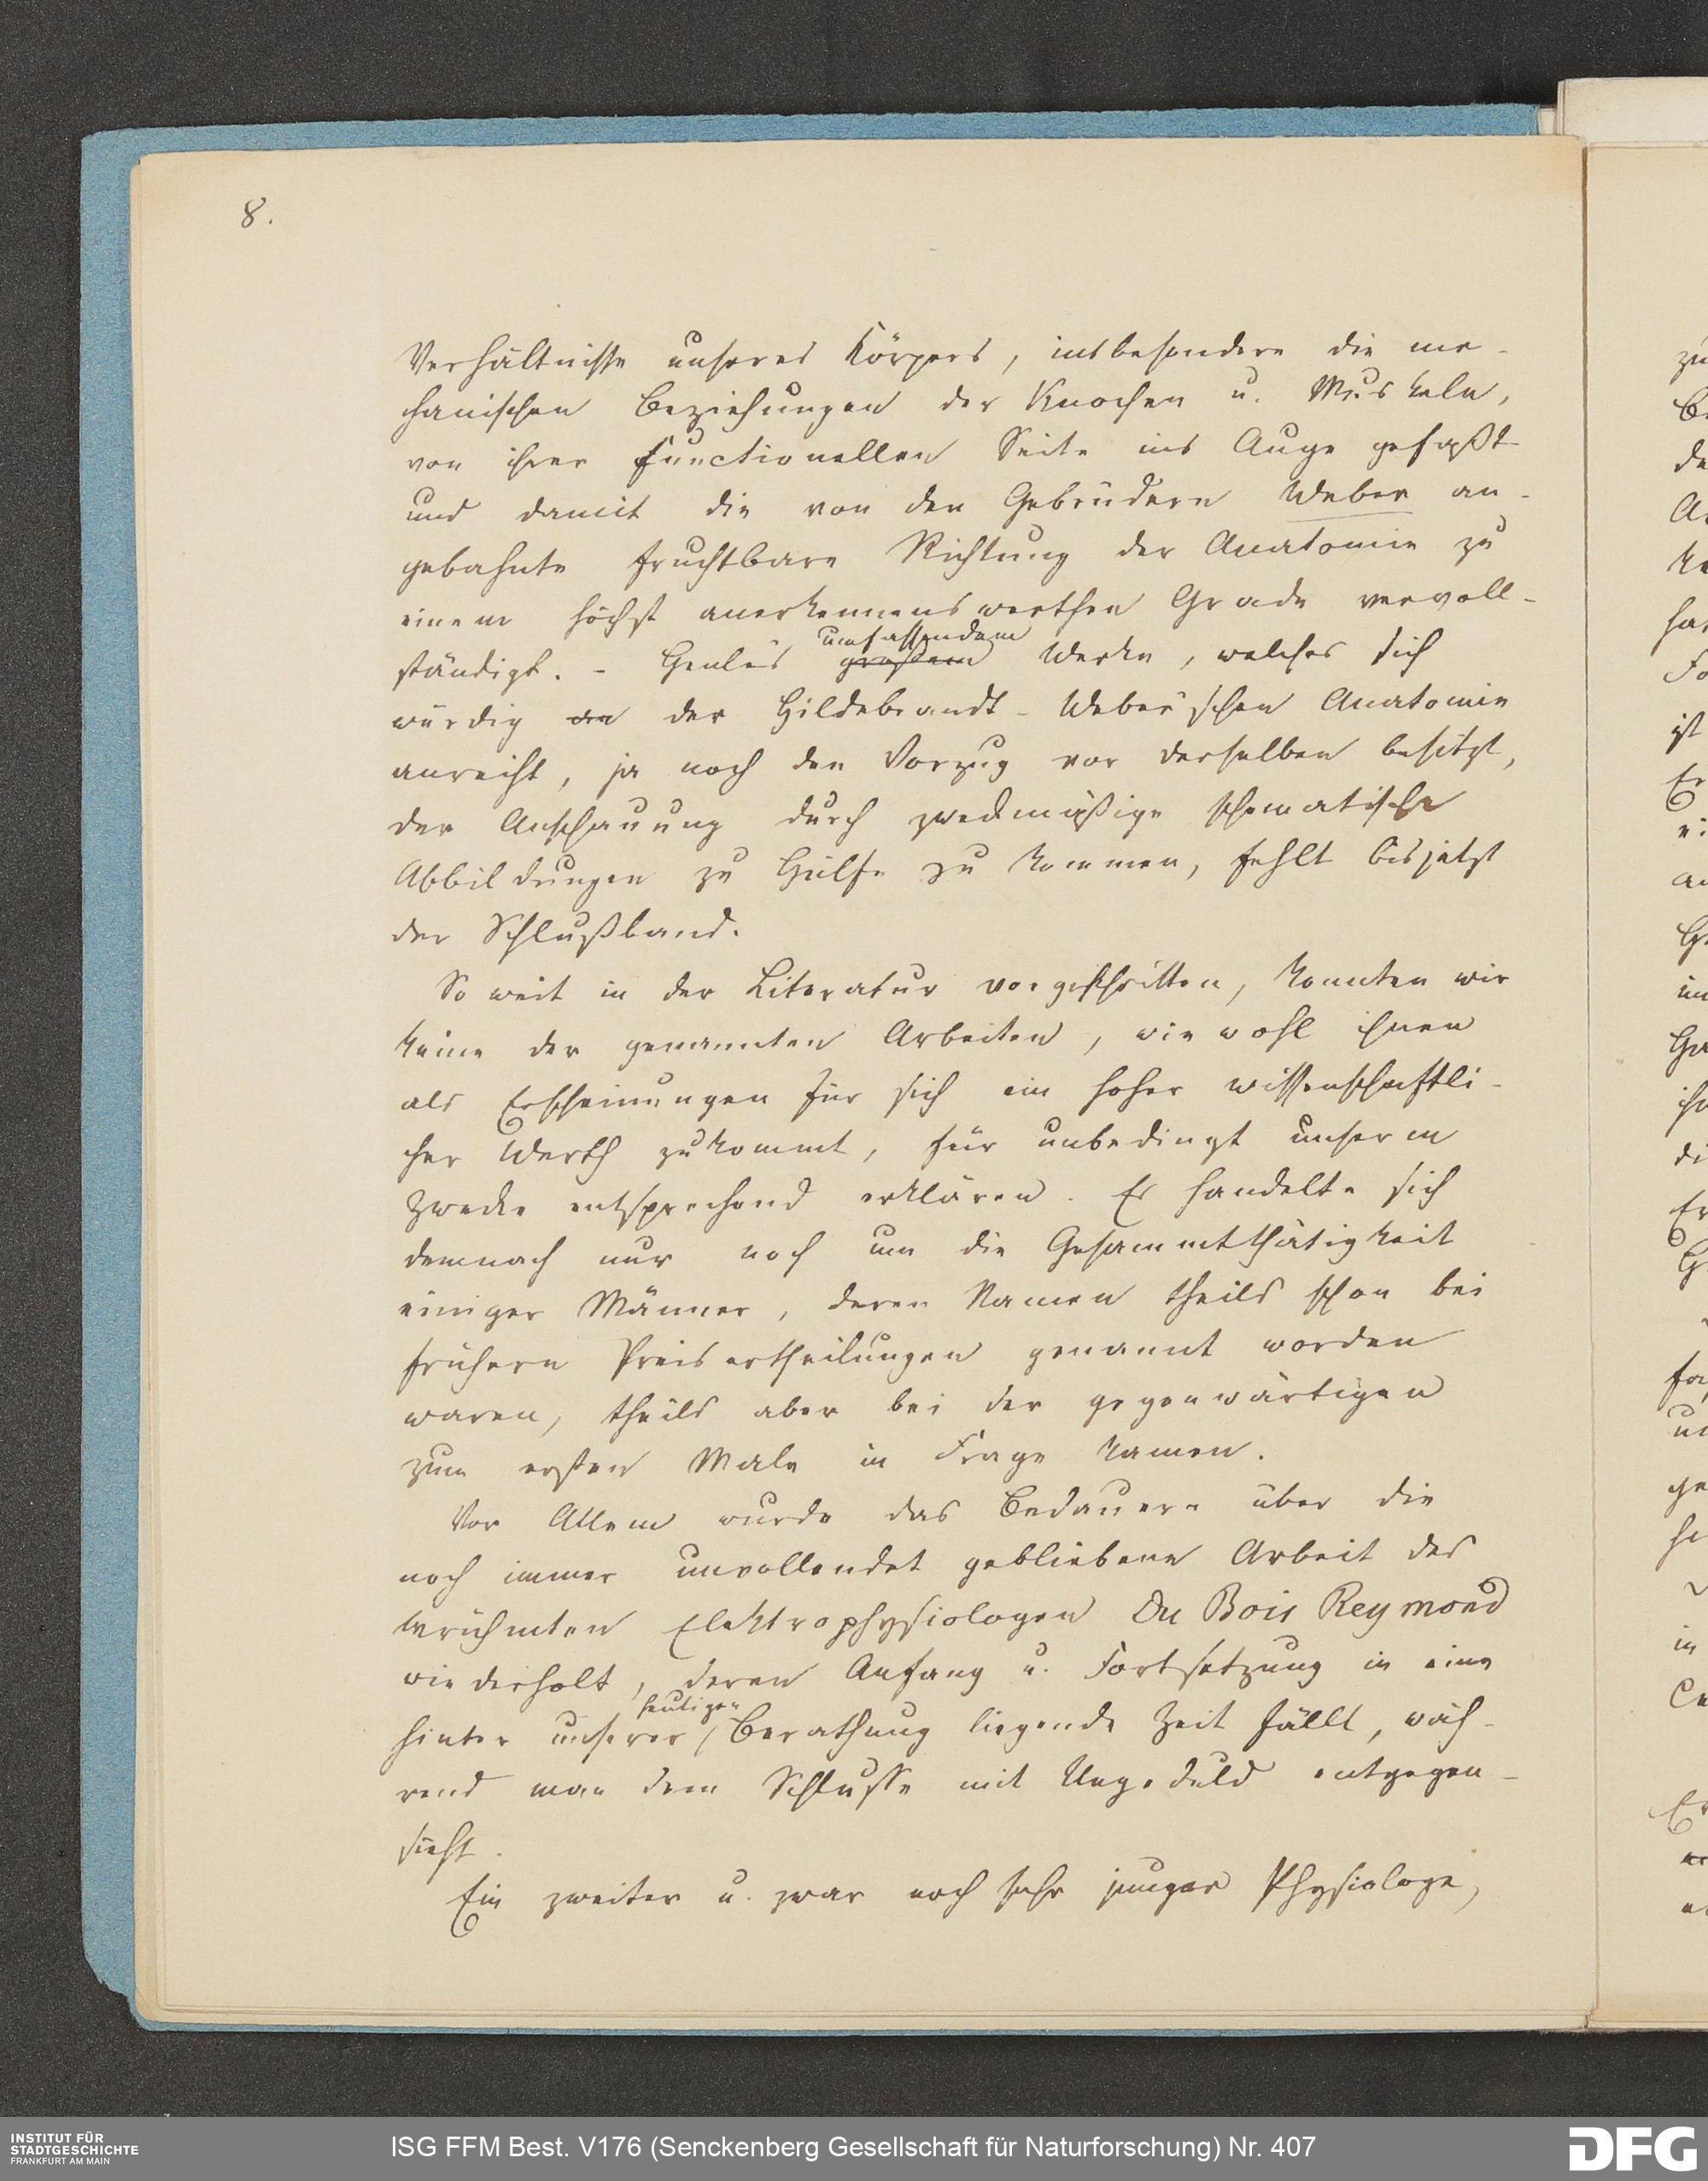 8.
Verhältnisse unseres Körpers, insbesondere die me-
chanischen Beziehungen der Knochen u. Muskeln,
von ihrer functionellen Seite ins Auge gefaßt
und damit die von den Gebrüdern Weber an-
gebahnte fruchtbare Richtung der Anatomie zu
einem höchst anerkennenswerthen Grade vervoll-
umfassendem
ständigt. - Henle's großem Werke, welches sich
würdig an der Hildebrandt-Weber'schen Anatomie
anreiht, ja noch den Vorzug vor derselben besitzt,
der Anschauung durch zweckmäßige schematische
Abbildungen zu Hülfe zu kommen, fehlt bis jetzt
der Schlußband.
So weit in der Literatur vorgeschritten, konnten wir
keine der genannten Arbeiten, wiewohl ihnen
als Erscheinungen für sich ein hoher wissenschaftli-
cher Werth zukommt, für unbedingt unserm
Zwecke entsprechend erklären. Es handelte sich
demnach nur noch um die Gesammtthätigkeit
einiger Männer, deren Namen theils schon bei
frühern Preisertheilungen genannt worden
waren, theils aber bei der gegenwärtigen
zum ersten Male in Frage kamen.
Vor Allem wurde das Bedauern über die
noch immer unvollendet gebliebene Arbeit des
berühmten Elektrophysiologen Du Bois Reymond
wiederholt, deren Anfang u. Fortsetzung in eine
heutigen
hinter unserer Berathung liegende Zeit fällt, wäh-
rend man dem Schlusse mit Ungeduld entgegen-
sieht.
Ein zweiter u. zwar noch sehr junger Physiologe,
INSTITUT FÜR
STADTGESCHICHTE
FRANKFURT AM MAIN
ISG FFM Best. V176 (Senckenberg Gesellschaft für Naturforschung) Nr. 407
DFG